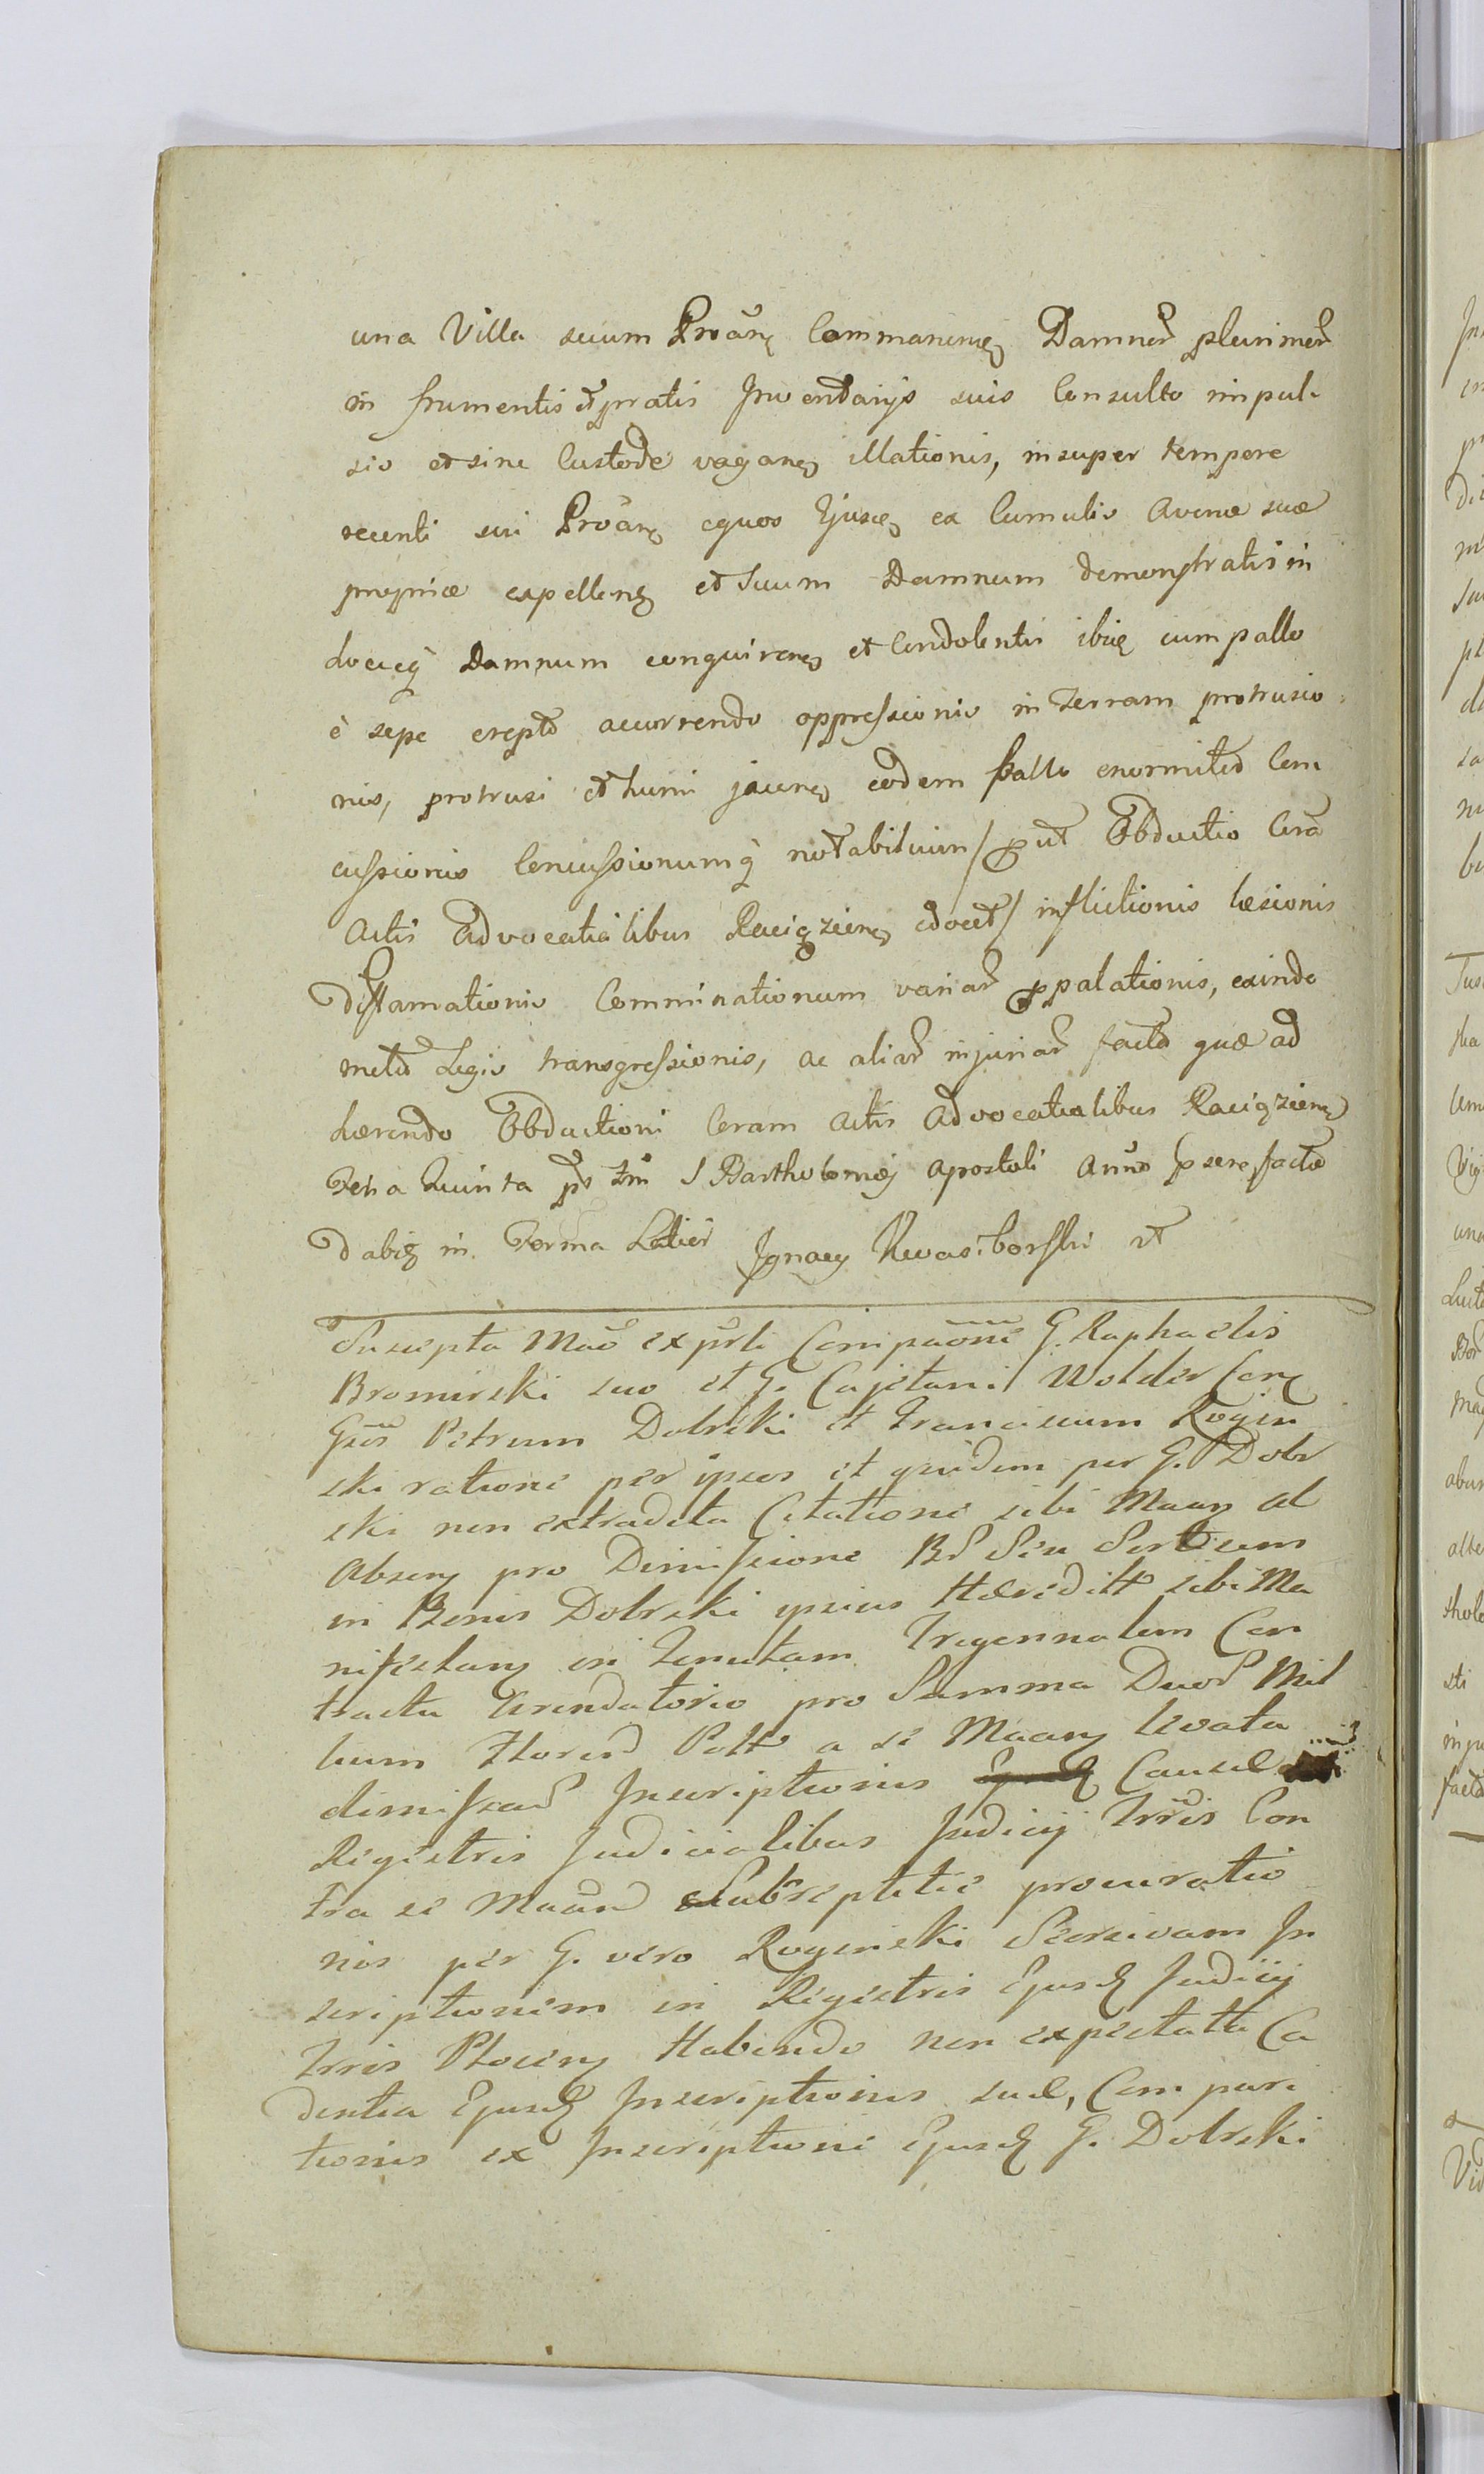 una Villa secum Proãnę Commanenę Damnor̃ plurimor̃
in frumentis et pratis Inventarijs suis Consulto impul-
sis et sine Custode vaganę illationis, insuper tempore
recenti sui Proãnę equos Ejusdę ex Cumulis Avenæ suæ
propriæ expellenę et suum Damnum demonstratis in
Locuq̃ Damnum conquirenę et Condolentis ibidę cum pallo
è sepe erepto accurrendo oppressionis in Terram protrusio-
nis, protrusi et humi jacenę eodem pallo enormiter Con
cussionis Concussionumq̃ notabilium / put Obductio Corã
Actis Advocatialibus Raciązienę edocet / inflictionis læsionis
Diffamationis Comminationum variar̃ ppalationis, exinde
metæ Legis transgressionis, ac aliar̃ injuriar̃ factæ quæ ad
hærendo Obductioni Coram Actis Advocatialibus Raciązienę
Feria Quinta p̃s Fm̃ S Bartholomæj Apostoli Anno pserõ factæ
dabię in Forma Latior̃ Ignacy Kwasiborski mp
Suscepta Mañe ex pũrti Compaõne G. Raphaelis
Bromirski suo et G. Cajetani Wolder Conę
Gños Petrum Dobrski et Franciscum Rogin
ski ratione per ipsos et quidem per G. Dobr
ski non extradita Citatione sibi Maanę al
Absenę pro Dimissione B̃o Seu Sortium
in Bonis Dobrski ipsius Hæreditt sibi Ma
nifestanę in Tenutam Trigennalem Con
tractu Arendatorio pro Summa Duor̃ Mil
lium Floren̄ Poltt a se Maanę levata
dimissar̃ Inscriptionis Causæ in
Registris Judicialibus Judicij Trr̃is Con
tra se Maanę Subreptitie procuratio
nis per G. vero Roginski Seorsivam In
scriptionem in Registris Ejusdę Judicij
Trr̃is Plocenę Habendo non expectata Ca
dentia Ejusdę Inscriptionis suæ, Compari
tionis ex Inscriptione Ejusdę G. Dobrski